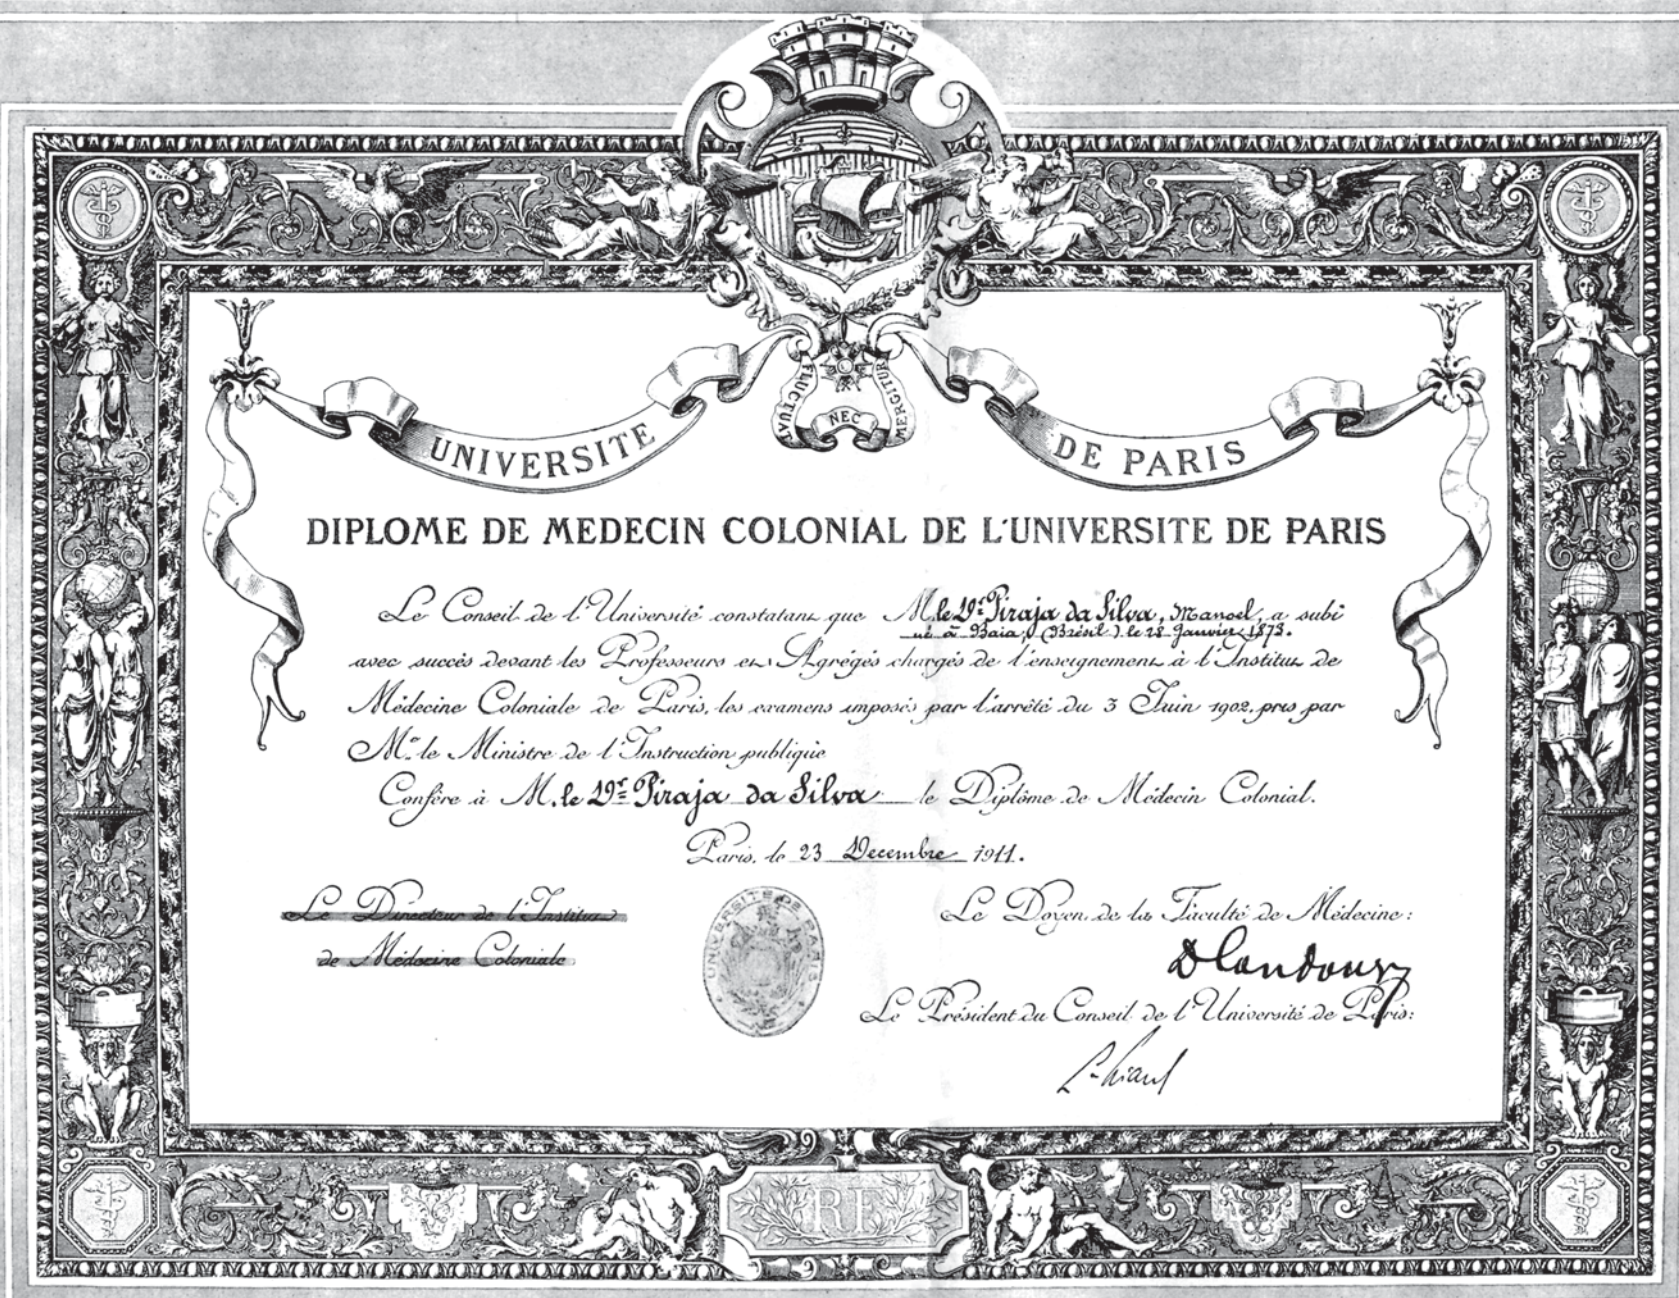 FLUCTUAT NEC MERGITUR
UNIVERSITE DE PARIS
DIPLOME DE MEDECIN COLONIAL DE L'UNIVERSITE DE PARIS
Le Conseil de l'Université constatant que M. le Dr Piraja da Silva, Manoel, a subi
né à Baia, (Brésil) le 28 Janvier 1873.
avec succès devant les Professeurs et Agrégés chargés de l'enseignement à l'Institut de
Médecine Coloniale de Paris, les examens imposés par l'arrêté du 3 Juin 1902, pris par
Mr. le Ministre de l'Instruction publique
Confère à M. le Dr Piraja da Silva le Diplôme de Médecin Colonial.
Paris, le 23 Decembre 1911.
Le Directeur de l'Institut
de Médecine Coloniale
UNIVERSITE DE PARIS
Le Doyen de la Faculté de Médecine:
DLandouzy
Le Président du Conseil de l'Université de Paris:
RF